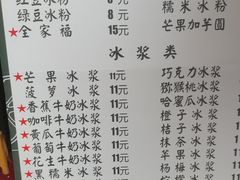 红豆冰粉 8元 糯米冰粉
绿豆冰粉 8元 芒果加芋圆
★全家福 15元
冰浆类
★芒果冰浆 11元 巧克力冰浆
菠萝冰浆 11元 猕猴桃冰浆
★香蕉牛奶冰浆 11元 哈蜜瓜冰浆
★咖啡牛奶冰浆 11元 橙子冰浆
★黄瓜牛奶冰浆 11元 桔子冰浆
★葡萄牛奶冰浆 11元 抹茶冰浆
★花生牛奶冰浆 11元 苹果冰浆
★黑糯米冰浆 11元 杨梅冰浆